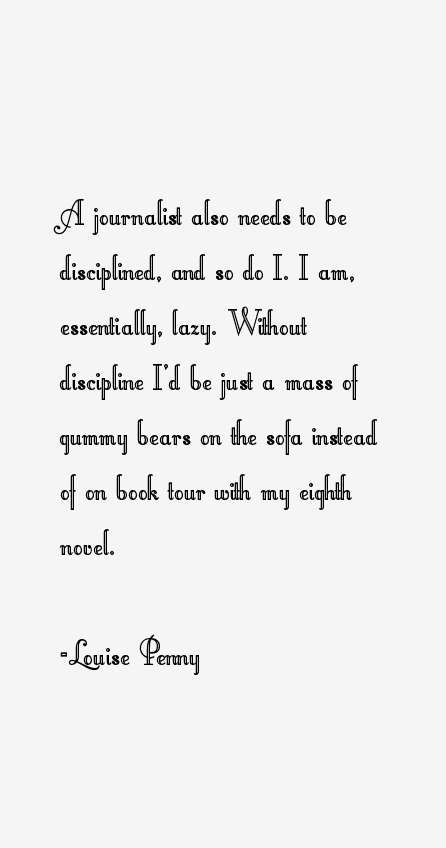 A journalist also needs to be
disciplined, and so do I. I am,
essentially, lazy. Without
discipline I'd be just a mass of
gummy bears on the sofa instead
of on book tour with my eighth
novel.
-Louise Penny